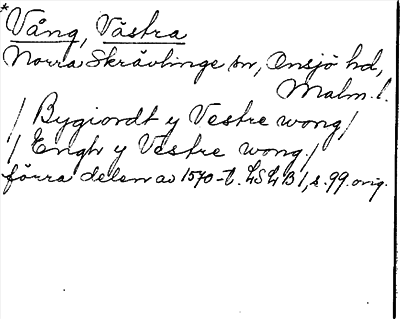 *Vång, Västra
Norra Skrävlinge sn, Onsjö hd,
Malm. l.
/ Bygiordt y Vestre wong/
/ Engh y Vestre wong./
förra delen av 1570-t. LSLB 1, s. 99. orig.